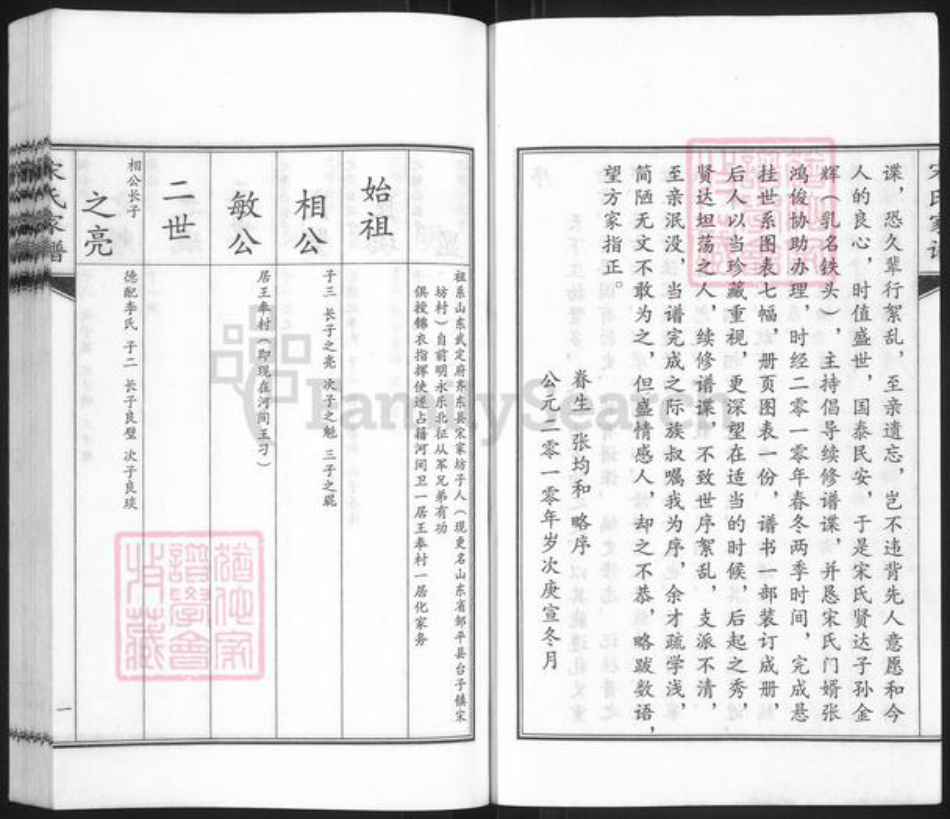 宋氏家谱
谍，恐久辈行絮乱，至亲遗忘，岂不违背先人意愿和今
人的良心，时值盛世，国泰民安，于是宋氏贤达子孙金
辉（乳名铁头），主持倡导续修谱谍，并恳宋氏门婿张
鸿俊协助办理，时经二零一零年春冬两季时间，完成悬
挂世系图表七幅，册页图表一份，谱书一部装订成册，
后人以当珍藏重视，更深望在适当的时候，后起之秀，
贤达坦荡之人，续修谱谍，不致世序絮乱，支派不清，
至亲泯没，当谱完成之际族叔嘱我为序，余才疏学浅，
简陋无文不敢为之，但盛情感人，却之不恭，略跋数语，
望方家指正。
眷生 张均和 略序
公元二零一零年岁次庚宣冬月
祖系山东武定府齐东县宋家坊子人（现更名山东省邹平县台子镇宋
坊村）自前明永乐北征从军兄弟有功
俱授锦衣指挥使遂占籍河间卫一居王奉村一居化家务
始祖
相公
子三 长子之亮 次子之魁 三子之琨
敏公
居王奉村（即现在河间王刁）
二世
相公长子
之亮
德配李氏 子二 长子良璧 次子良琰
宋氏家谱
一
FamilySearch